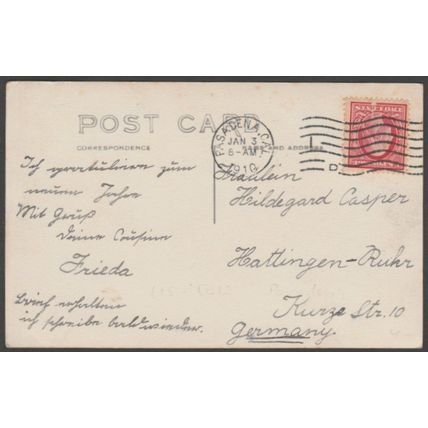 POST CARD
CORRESPONDENCE
NAME AND ADDRESS
PASADENA, CAL.
JAN 3
6-AM
1910
Ich gratuliere zum
neuen Jahre
Mit Gruß
deine Cousine
Frieda
Brief erhalten
ich schreibe bald wieder.
Fräulein
Hildegard Casper
Hattingen-Ruhr
Kurze Str. 10
Germany.